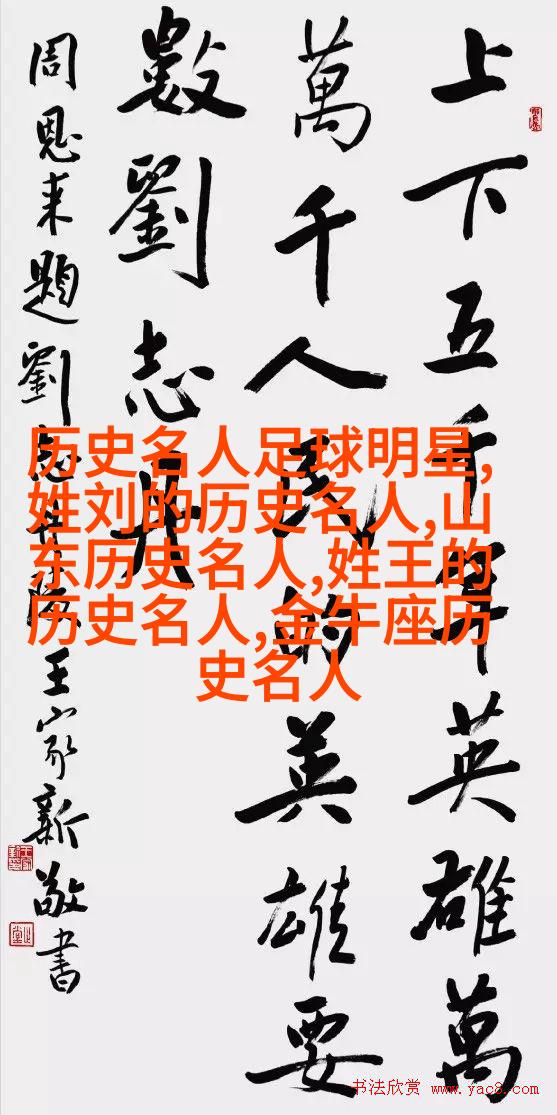 上下五千年英雄萬
萬千人民的英雄要
數劉志丹
周恩来題劉志丹陵王家新敬書
历史名人足球明星,
姓刘的历史名人,山
东历史名人,姓王的
历史名人,金牛座历
史名人
书法欣赏 www.yac8.com